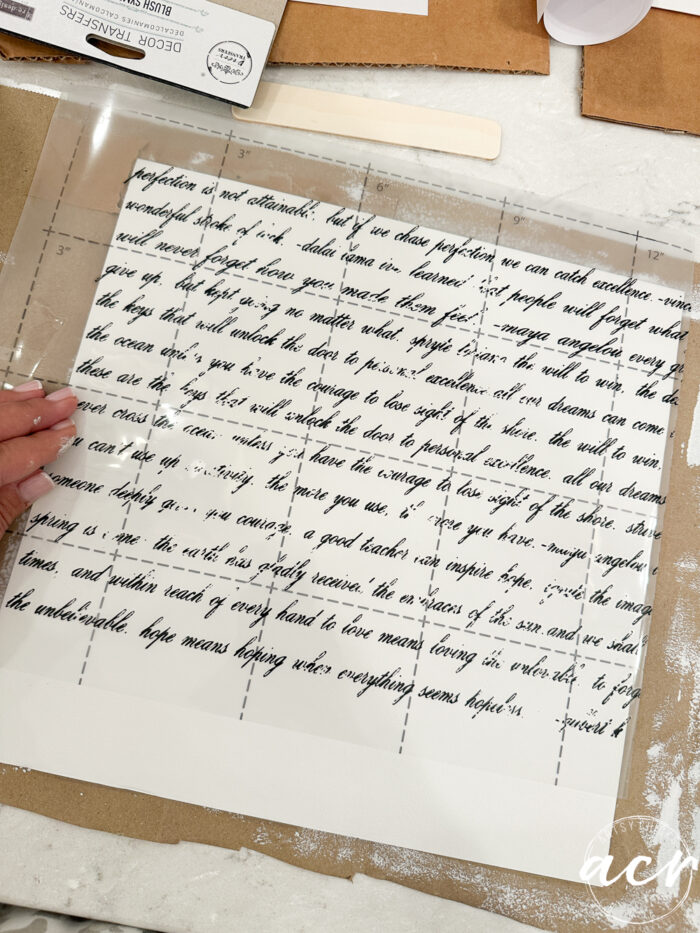 re design
BLUSH
DECALCOMANIES
DECOR TRANSFERS
DECOR TRANSFERS
3" 6" 9" 12"
perfection is not attainable, but if we chase perfection we can catch excellence.
wonderful stroke of luck. -dalai lama learned that people will forget what
will never forget how you made them feel. -maya angelou every
give up, but kept going no matter what. the will to win, the
3"
the keys that will unlock the door to personal excellence all our dreams can come
the ocean unless you have the courage to lose sight of the shore. the will to win,
these are the keys that will unlock the door to personal excellence. all our dreams
ever cross the ocean unless you have the courage to lose sight of the shore. strive
can't use up creativity. the more you use, the more you have. -maya angelou
someone deeply gives you courage. a good teacher can inspire hope, ignite the
spring is come: the earth has gladly received the embraces of the sun and we shall
times, and within reach of every hand to love means loving the unlovable. to
the unbelievable. hope means hoping when everything seems hopeless.
acr